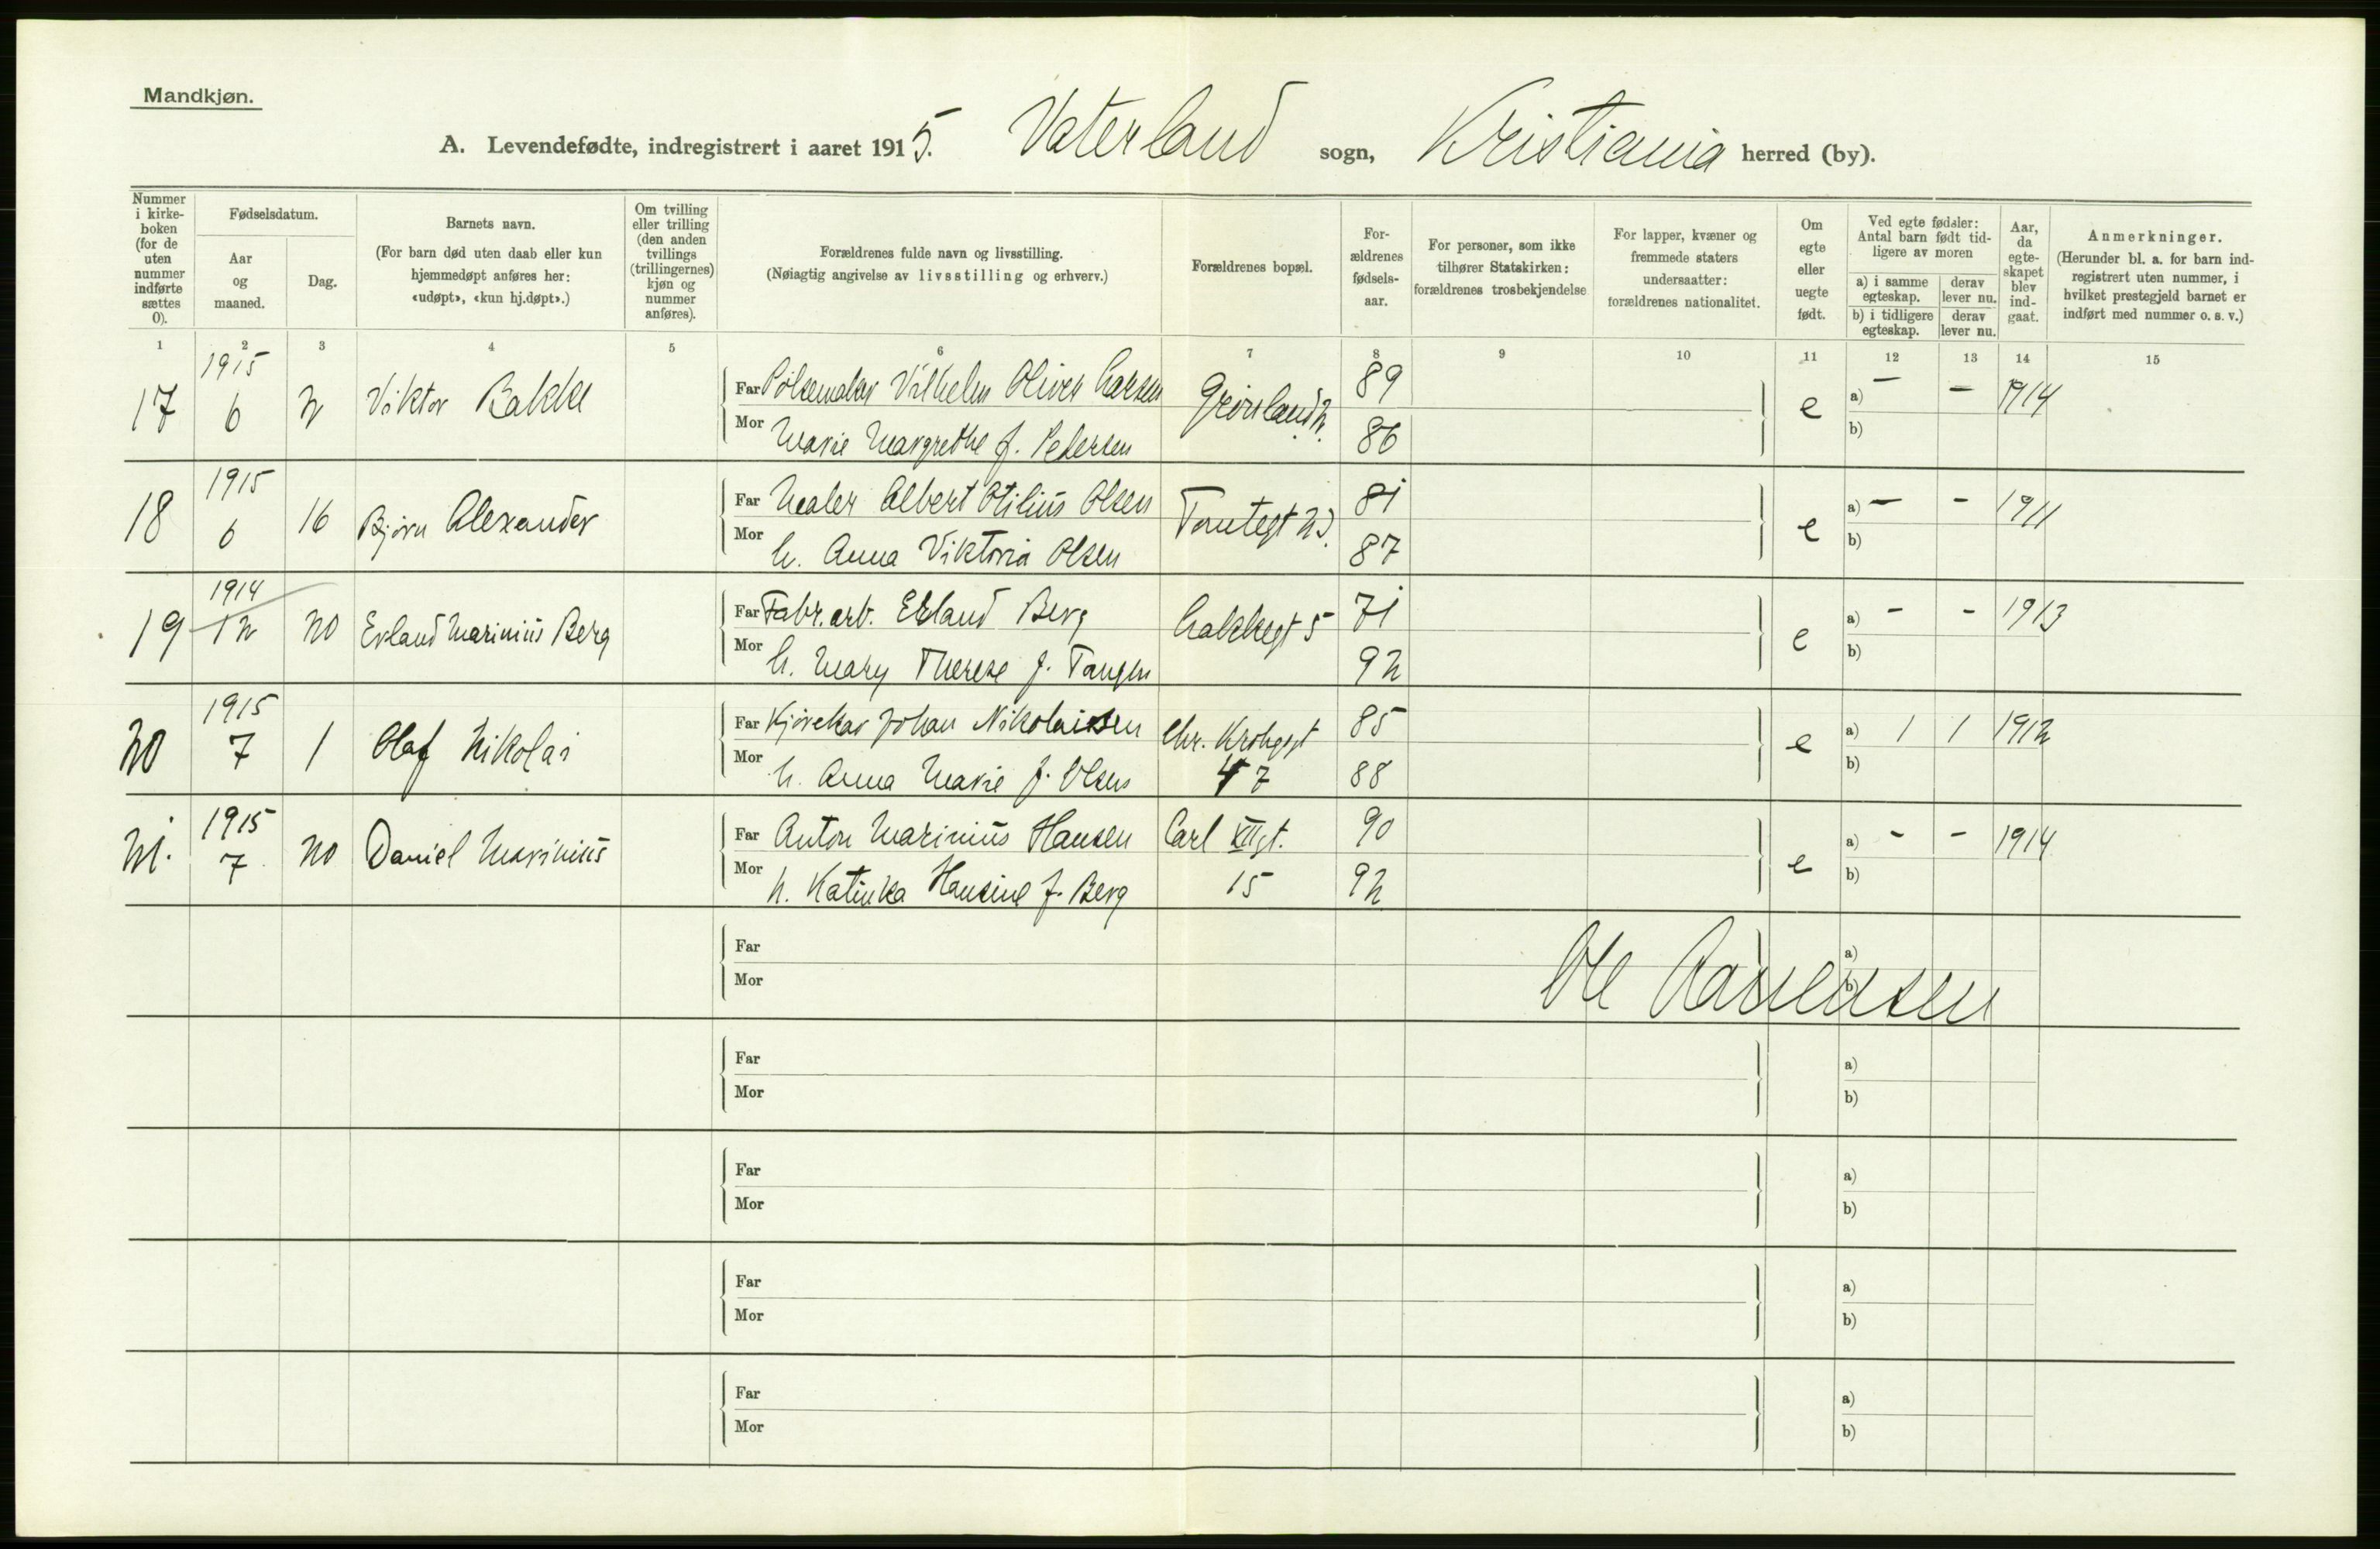 Mandkjøn.
A. Levendefødte, indregistrert i aaret 1915. Vaterland sogn, Kristiania herred (by).
Nummer i kirkeboken (for de uten nummer indførte sættes 0).
Fødselsdatum.
Aar og maaned.
Dag.
Barnets navn.
(For barn død uten daab eller kun hjemmedøpt anføres her: «udøpt», «kun hj.døpt».)
Om tvilling eller trilling (den anden tvillings (trillingernes) kjøn og nummer anføres).
Forældrenes fulde navn og livsstilling.
(Nøiagtig angivelse av livsstilling og erhverv.)
Forældrenes bopæl.
Forældrenes fødselsaar.
For personer, som ikke tilhører Statskirken: forældrenes trosbekjendelse
For lapper, kvæner og fremmede staters undersaatter: forældrenes nationalitet.
Om egte eller uegte født.
Ved egte fødsler: Antal barn født tidligere av moren
a) i samme egteskap.
derav lever nu.
b) i tidligere egteskap.
derav lever nu.
Aar, da egteskapet blev indgaat.
Anmerkninger.
(Herunder bl. a. for barn indregistrert uten nummer, i hvilket prestegjeld barnet er indført med nummer o. s. v.)
1 2 3 4 5 6 7 8 9 10 11 12 13 14 15
17 1915 6 2 Viktor Bakke Far Pølsemaker Vilhelm Oliver Larsen Grønland 2. 89 e a) – – 1914
Mor Marie Margrethe f. Pedersen 86 b)
18 1915 6 16 Bjørn Alexander Far Maler Albert Otilius Olsen Tomtegt 23. 81 e a) – – 1911
Mor h. Anna Viktoria Olsen 87 b)
19 1914 12 20 Erland Marinius Berg Far Fabr.arb. Erland Berg Lakkegt 5 71 e a) – – 1913
Mor h. Mary Therese f. Tangen 92 b)
20 1915 7 1 Olaf Nikolai Far Kjørekar Johan Nikolaisen Chr. Krohgsgt 85 e a) 1 1 1912
Mor h. Anna Marie f. Olsen 47 88 b)
21. 1915 7 20 Daniel Marinius Far Anton Marinius Hansen Carl XIIgt. 90 e a) – – 1914
Mor h. Katinka Hansine f. Berg 15 92 b)
Far a)
Mor b)
Ole
Far a)
Mor b)
Far a)
Mor b)
Far a)
Mor b)
Far a)
Mor b)